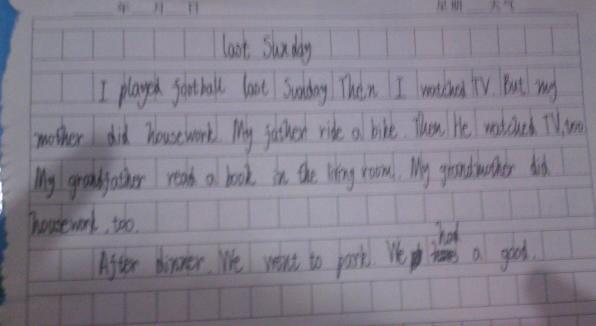 年 月 日 星期 天气
last Sunday
I played football last Sunday Then I watched TV. But my
mother did housework. My father ride a bike. Then He watched TV, too
My grandfather read a book in the living room. My grandmother did
housework, too.
After dinner. We went to park. We had a good.